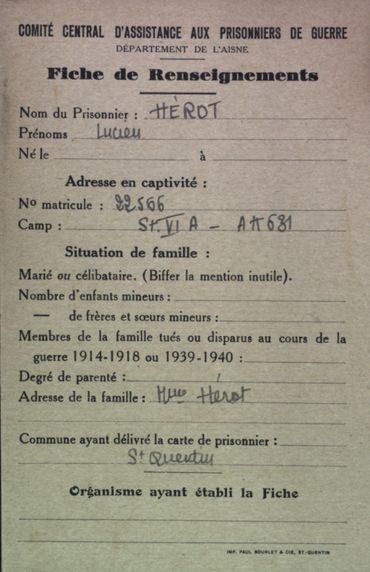 COMITÉ CENTRAL D'ASSISTANCE AUX PRISONNIERS DE GUERRE
DÉPARTEMENT DE L'AISNE
Fiche de Renseignements
Nom du Prisonnier : HÉROT
Prénoms Lucien
Né le à
Adresse en captivité :
No matricule : 22566
Camp : St. VI A - AK 681
Situation de famille :
Marié ou célibataire. (Biffer la mention inutile).
Nombre d'enfants mineurs :
— de frères et sœurs mineurs :
Membres de la famille tués ou disparus au cours de la
guerre 1914-1918 ou 1939-1940 :
Degré de parenté :
Adresse de la famille : Mme Hérot
Commune ayant délivré la carte de prisonnier :
St Quentin
Organisme ayant établi la Fiche
IMP. PAUL BOURLET & CIE, ST-QUENTIN